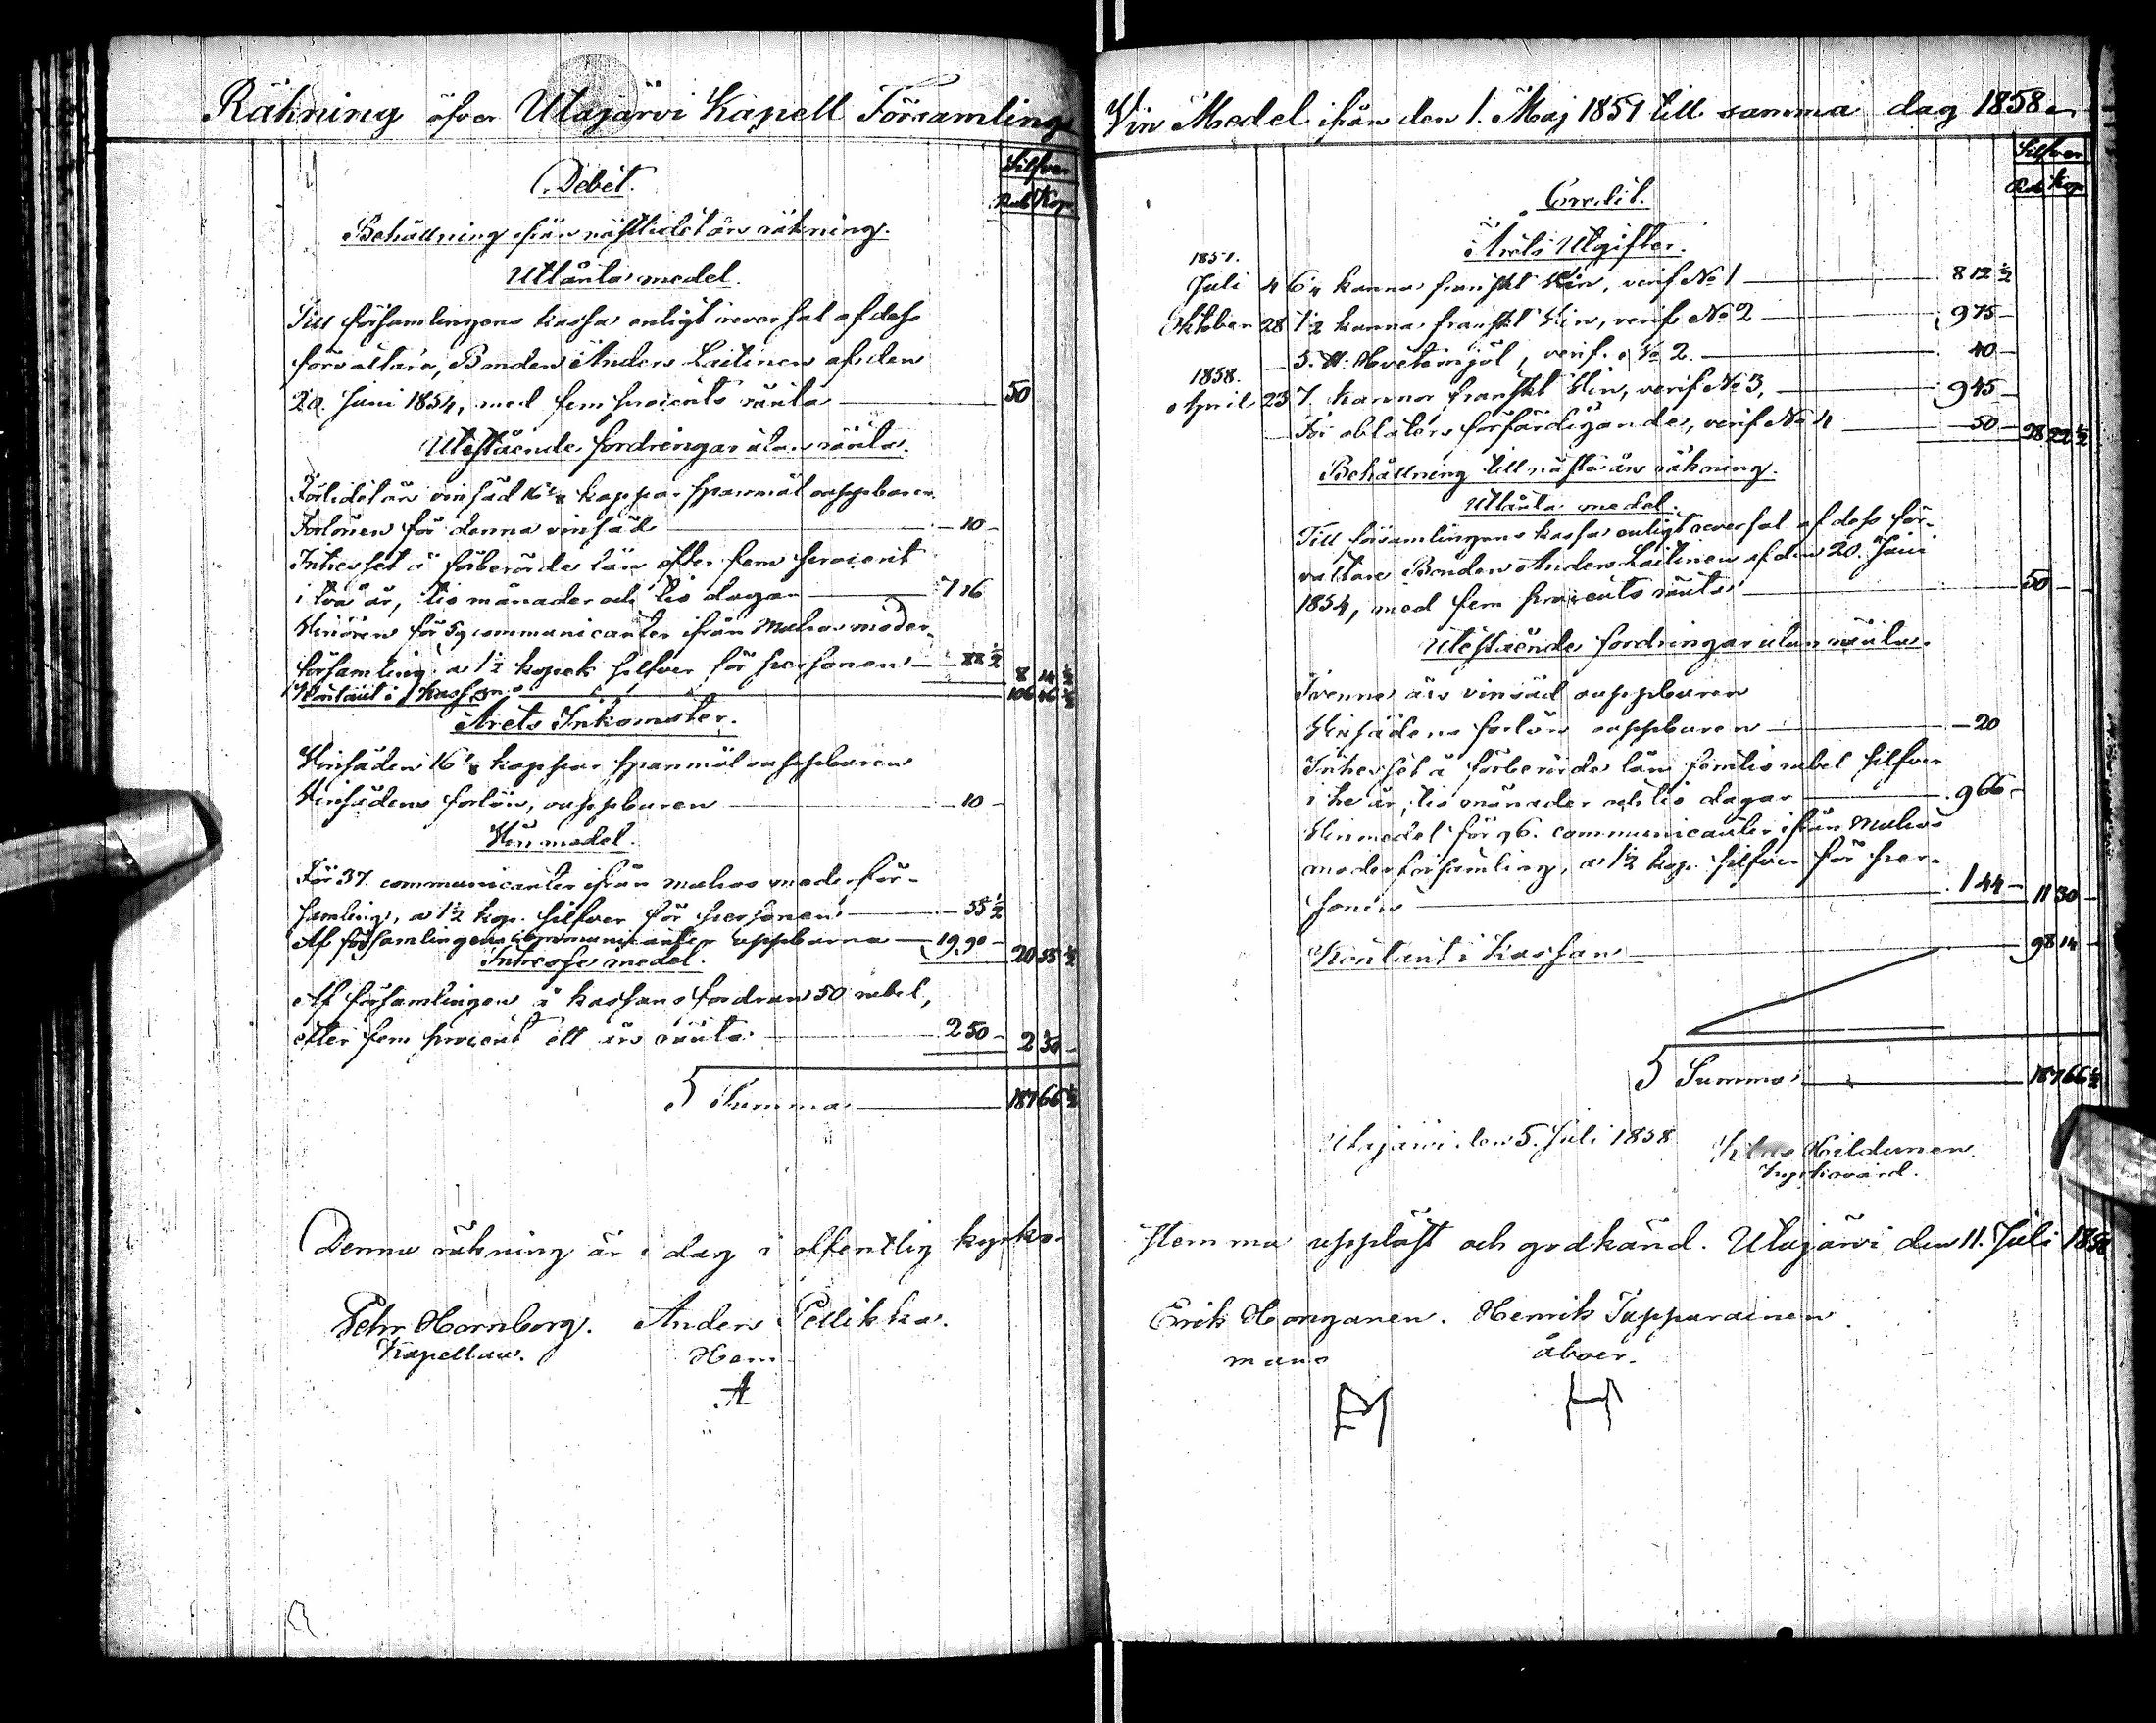 Räkning öfver Utajärvi Kapell Församlings
Debet.
Silfver
Rub Kop
Behållning ifrån nästlidet års räkning.
Utlånta medel.
Till församlingens kassa enligt reversal af dess
förvaltare, Bonden Anders Laitinen af den
20. Juni 1854, med fem procents ränta 50
Utestående fordringar utan ränta.
Förlidet års vinsäd 16 1/8 kappar spanmål ouppburen.
Forlönen för denna vinsäd — 10 —
Intresset å förberörde lån efter fem procent
i två år, tio månader och tio dagar 7 16
Vinören för 59 communicanter ifrån Muhos moder-
församling, a 1 1/2 kopek silfver för personen — 88 1/2 8 14 1/2
Kontant i Kassan 106 46 1/2
Årets Inkomster.
Vinsäden 16 1/8 kappar spanmål ouppburen
Vinsädens forlön, ouppburen — 10 —
Vin medel.
För 37 communicanter ifrån Muhos moderför-
samling, a 1 1/2 kop. silfver för personen — 55 1/2
Af församlingens communicanter uppburna 19 90 — 20 55 1/2
Intresse medel.
Af församlingen å kassans fordran 50 rubel,
efter fem procent ett års ränta 2 50 — 2 50 —
Summa 187 66 1/2
Denna räkning är i dag i offentlig kyrko-
Pehr Hornborg. Anders Pellikka.
Kapellan. Hem
A
Vin Medel ifrån den 1. Maj 1857 till samma dag 1858.
Silfver
Rub Kop
Credit.
Årets Utgifter.
1857.
Juli 4 6 1/4 kanna franskt Vin, verif No 1 8 12 1/2
Oktober 28 7 1/2 kanna franskt Vin, verif No 2 9 75 —
5. ℔. Hvetemjöl, verif. No 2. 40 —
1858.
April 23 7. kannor franskt Vin, verif No 3, 9 45 —
För oblaters förfärdigande, verif No 4 — 50 — 28 22 1/2
Behållning till nästa års räkning.
Utlånta medel.
Till församlingens kassa enligt reversal af dess för-
valtare Bonden Anders Laitinen af den 20. Juni
1854, med fem procents ränta 50 —
Utestående fordringar utan ränta.
Tvenne års vinsäd ouppburen
Vinsädens forlön ouppburen — 20
Intresset å förberörde lån femtio rubel silfver
i tre år, tio månader och tio dagar 9 66 —
Vinmedel för 96. communicanter ifrån Muhos
moderförsamling, a 1 1/2 kop. silfver för per-
sonen 1 44 — 11 30 —
Kontant i Kassan 98 14 —
Summa 187 66 1/2
Utajärvi den 5. Juli 1858
Kyrkovärd.
stemma uppläst och godkänd. Utajärvi den 11. Juli 1858
Erik Honganen. Henrik Tapparainen.
mans åboer.
H